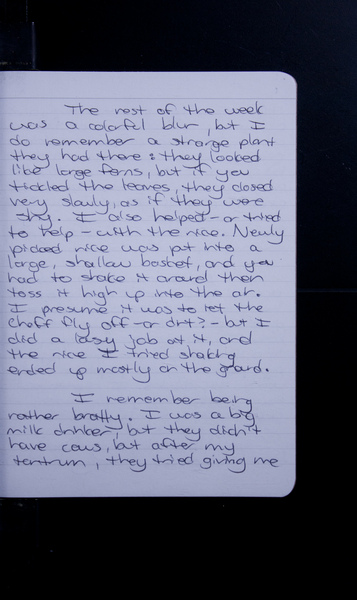 The rest of the week
was a colorful blur, but I
do remember a strange plant
they had there: they looked
like large ferns, but if you
tickled the leaves, they closed
very slowly, as if they were
shy. I also helped - or tried
to help - with the rice. Newly
picked rice was put into a
large, shallow basket, and you
had to shake it around then
toss it high up into the air.
I presume it was to let the
chaff fly off - or dirt? - but I
did a lousy job at it, and
the rice I tried shaking
ended up mostly on the ground.
I remember being
rather bratty. I was a big
milk drinker, but they didn't
have cows, but after my
tantrum, they tried giving me